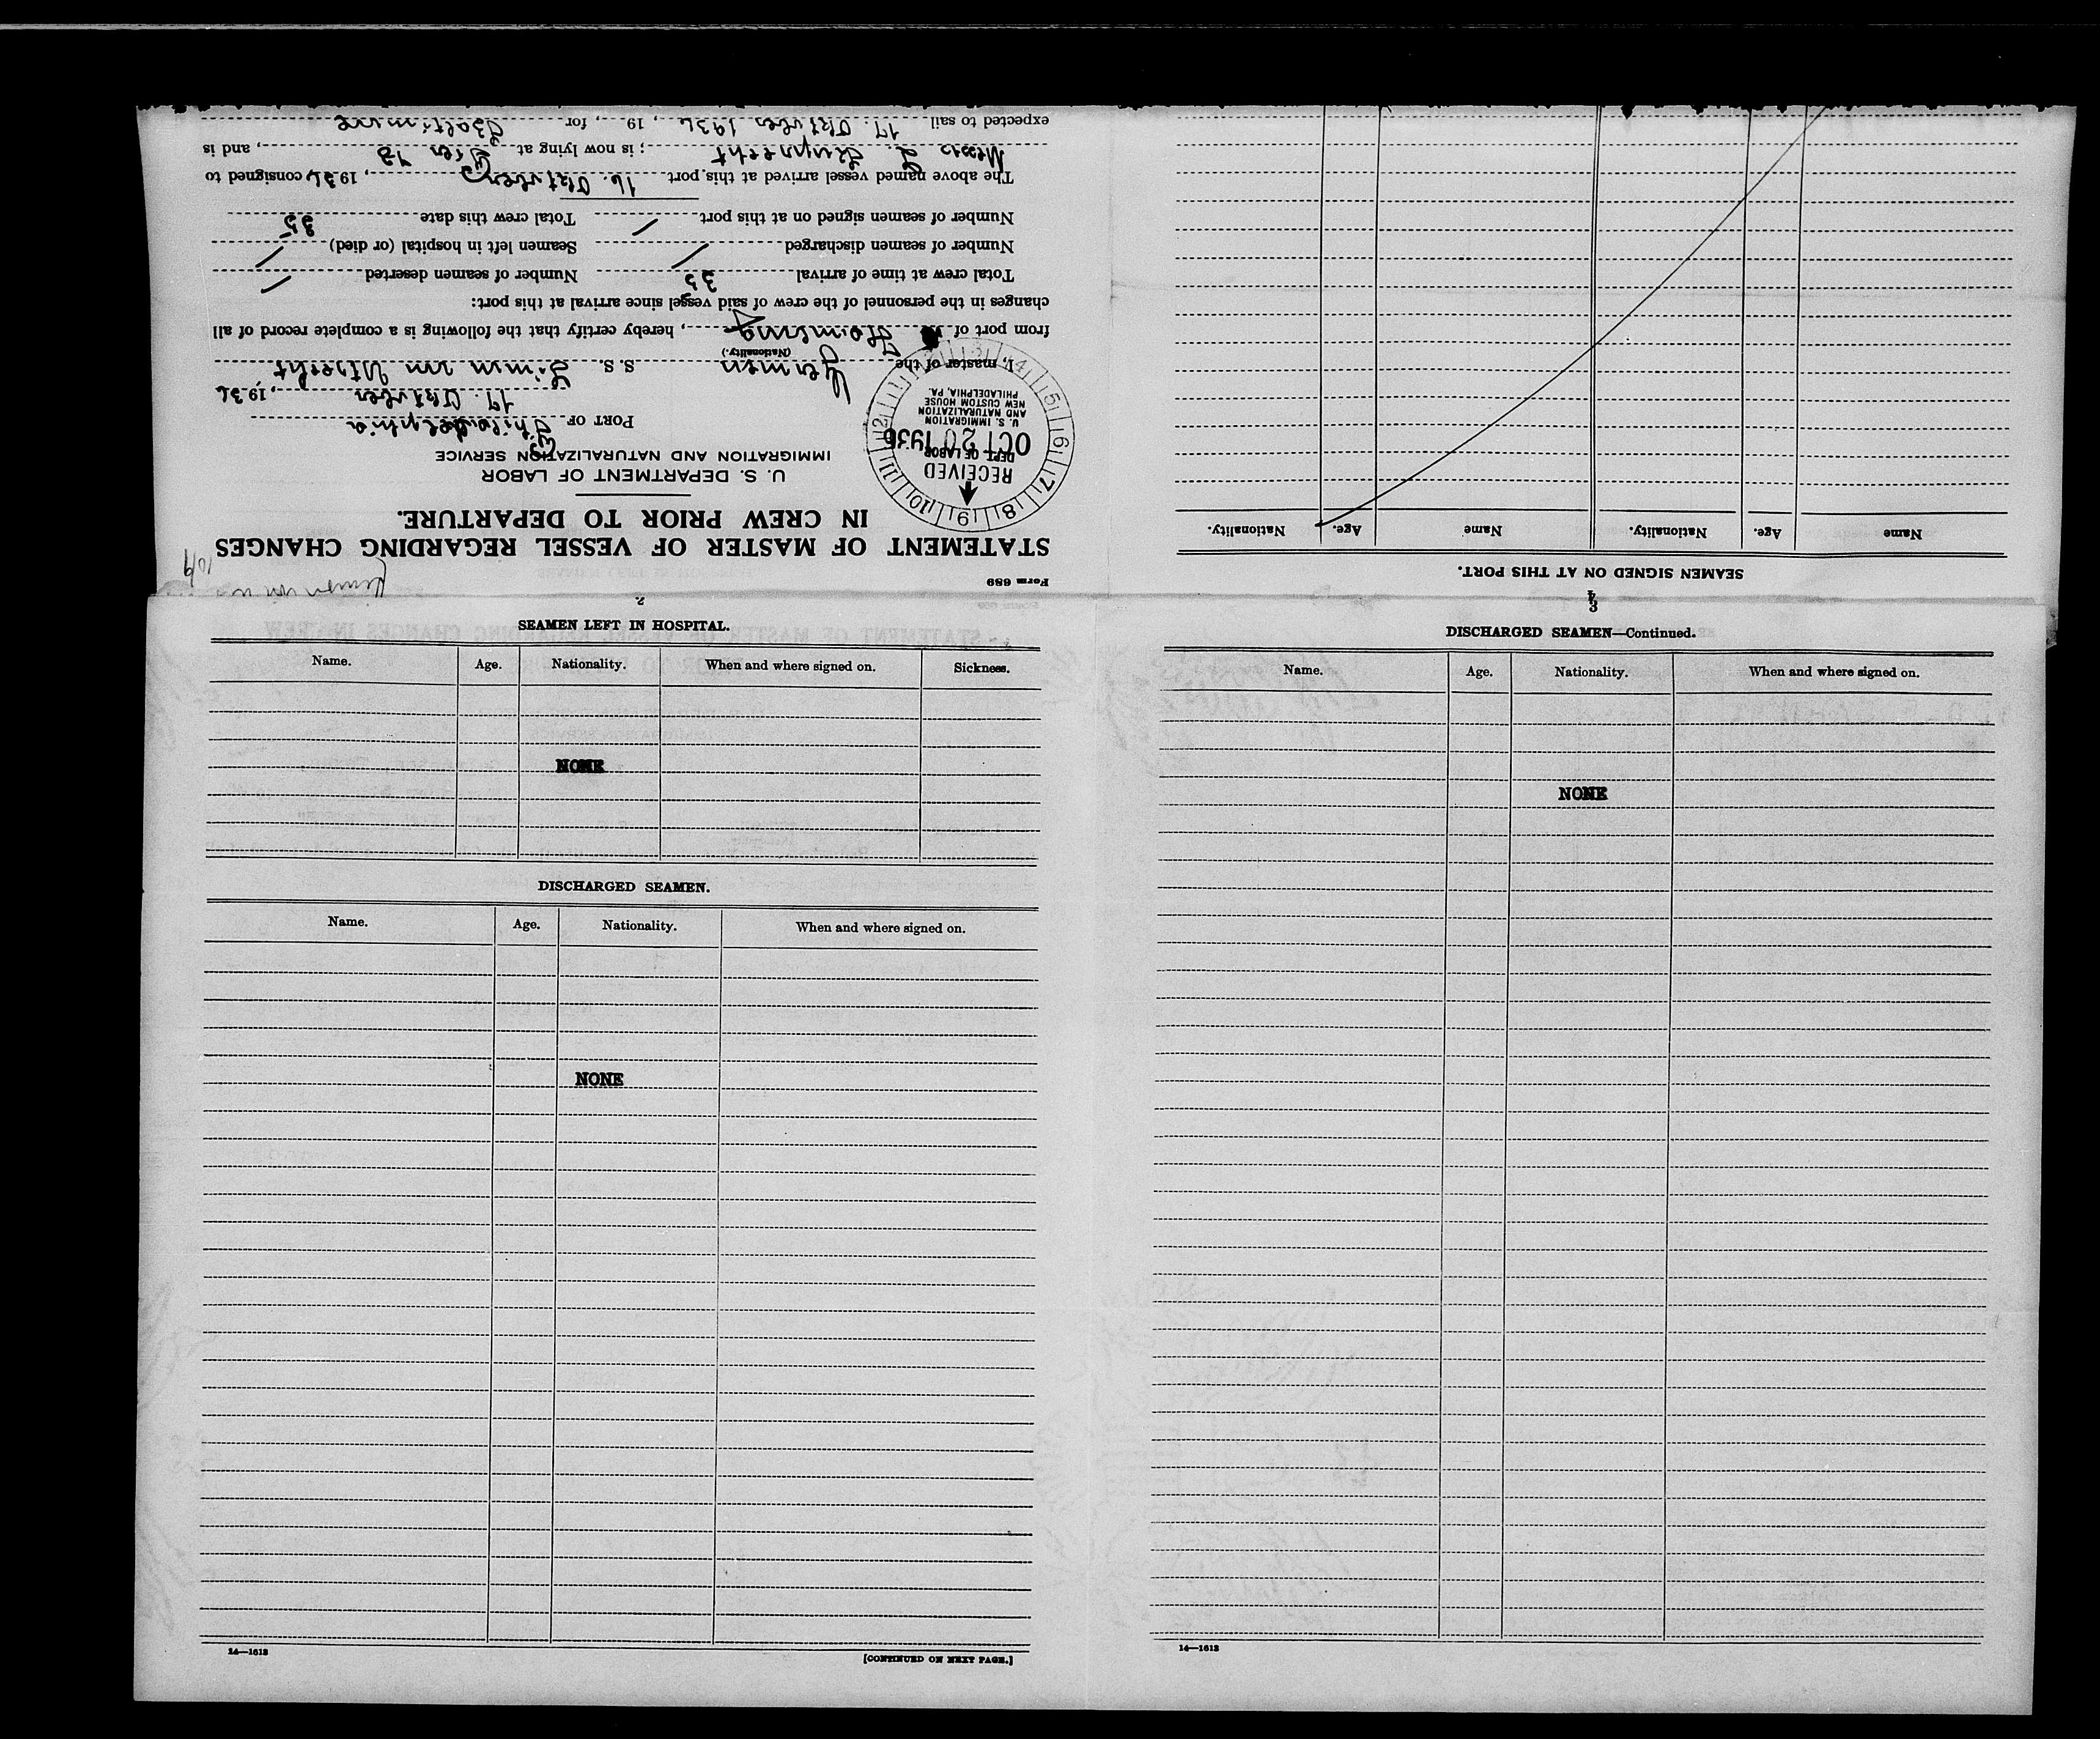 Form 689
STATEMENT OF MASTER OF VESSEL REGARDING CHANGES
IN CREW PRIOR TO DEPARTURE.
U. S. DEPARTMENT OF LABOR
IMMIGRATION AND NATURALIZATION SERVICE
PORT OF Philadelphia
17. Oktober, 1936
RECEIVED
DEPT. OF LABOR
OCT 20 1936
U. S. IMMIGRATION
AND NATURALIZATION
NEW CUSTOM HOUSE
PHILADELPHIA, PA.
I, master of the German S. S. Simon von Utrecht
(Nationality.)
from port of , hereby certify that the following is a complete record of all
changes in the personnel of the crew of said vessel since arrival at this port:
Total crew at time of arrival 35 Number of seamen deserted /
Number of seamen discharged / Seamen left in hospital (or died) /
Number of seamen signed on at this port / Total crew this date 35
The above named vessel arrived at this port 16. Oktober, 1936 consigned to
Messrs ; is now lying at Pier 78, and is
expected to sail 17. Oktober 1936, 19 , for Baltimore
SEAMEN SIGNED ON AT THIS PORT.
Name Age. Nationality. Name Age. Nationality.
4
2
SEAMEN LEFT IN HOSPITAL.
Name. Age. Nationality. When and where signed on. Sickness.
NONE
DISCHARGED SEAMEN.
Name. Age. Nationality. When and where signed on.
NONE
14—1613
[CONTINUED ON NEXT PAGE.]
3
DISCHARGED SEAMEN—Continued.
Name. Age. Nationality. When and where signed on.
NONE
14—1613